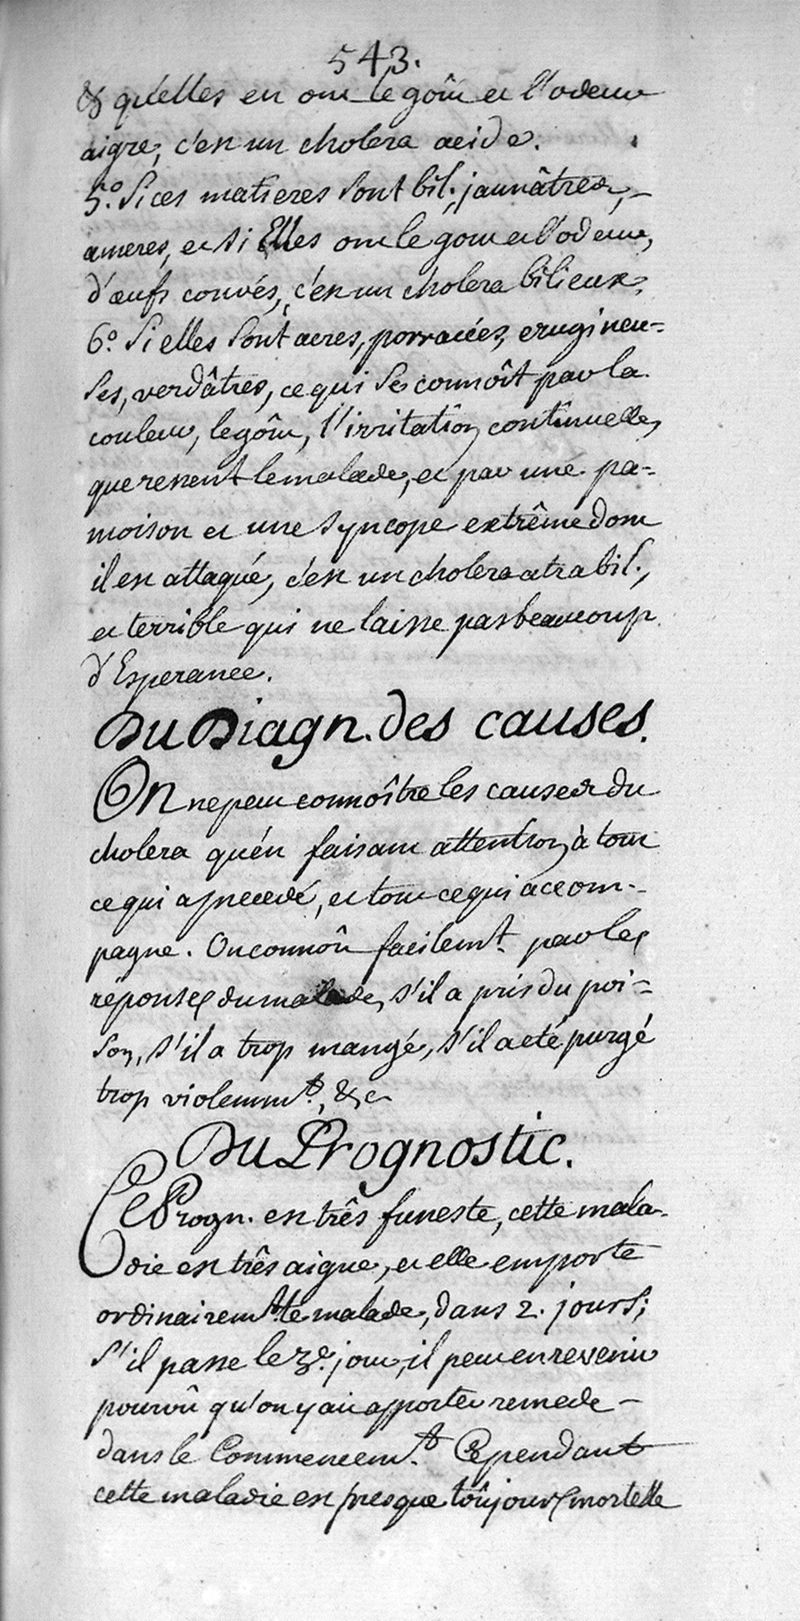 543.
& qu'elles en ont le goût et l'odeur
aigre, c'est un cholera acide.
5.° Si ces matieres sont bil., jaunâtres,
ameres, et si Elles ont le gout et l'odeur,
d'œufs couvés, c'est un cholera bilieux.
6.° Si elles sont acres, porracées, erugineu=
ses, verdâtres, ce qui se connoît par la
couleur, le goût, l'irritation continuelle,
que ressent le malade, et par une pa=
moison et une syncope extrême dont
il est attaqué, c'est un cholera atrabil.,
et terrible qui ne laisse pas beaucoup
d'Esperance.
Du Diagn. des causes.
On ne peut connoître les causes du
cholera qu'en faisant attention à tout
ce qui a precedé, et tout ce qui accom-
pagne. On connoît facilemt. par les
réponses du malade, s'il a pris du poi=
son, s'il a trop mangé, s'il a eté purgé
trop violemmt., &c
Du Prognostic.
Ce Progn. est três funeste, cette mala-
die est três aigue, et elle emporte
ordinairemt. le malade, dans 2. jours;
s'il passe le 3e. jour, il peut en revenir
pourvû qu'on y ait apporté remede
dans le Commencemt. Cependant
cette maladie est presque toûjours mortelle